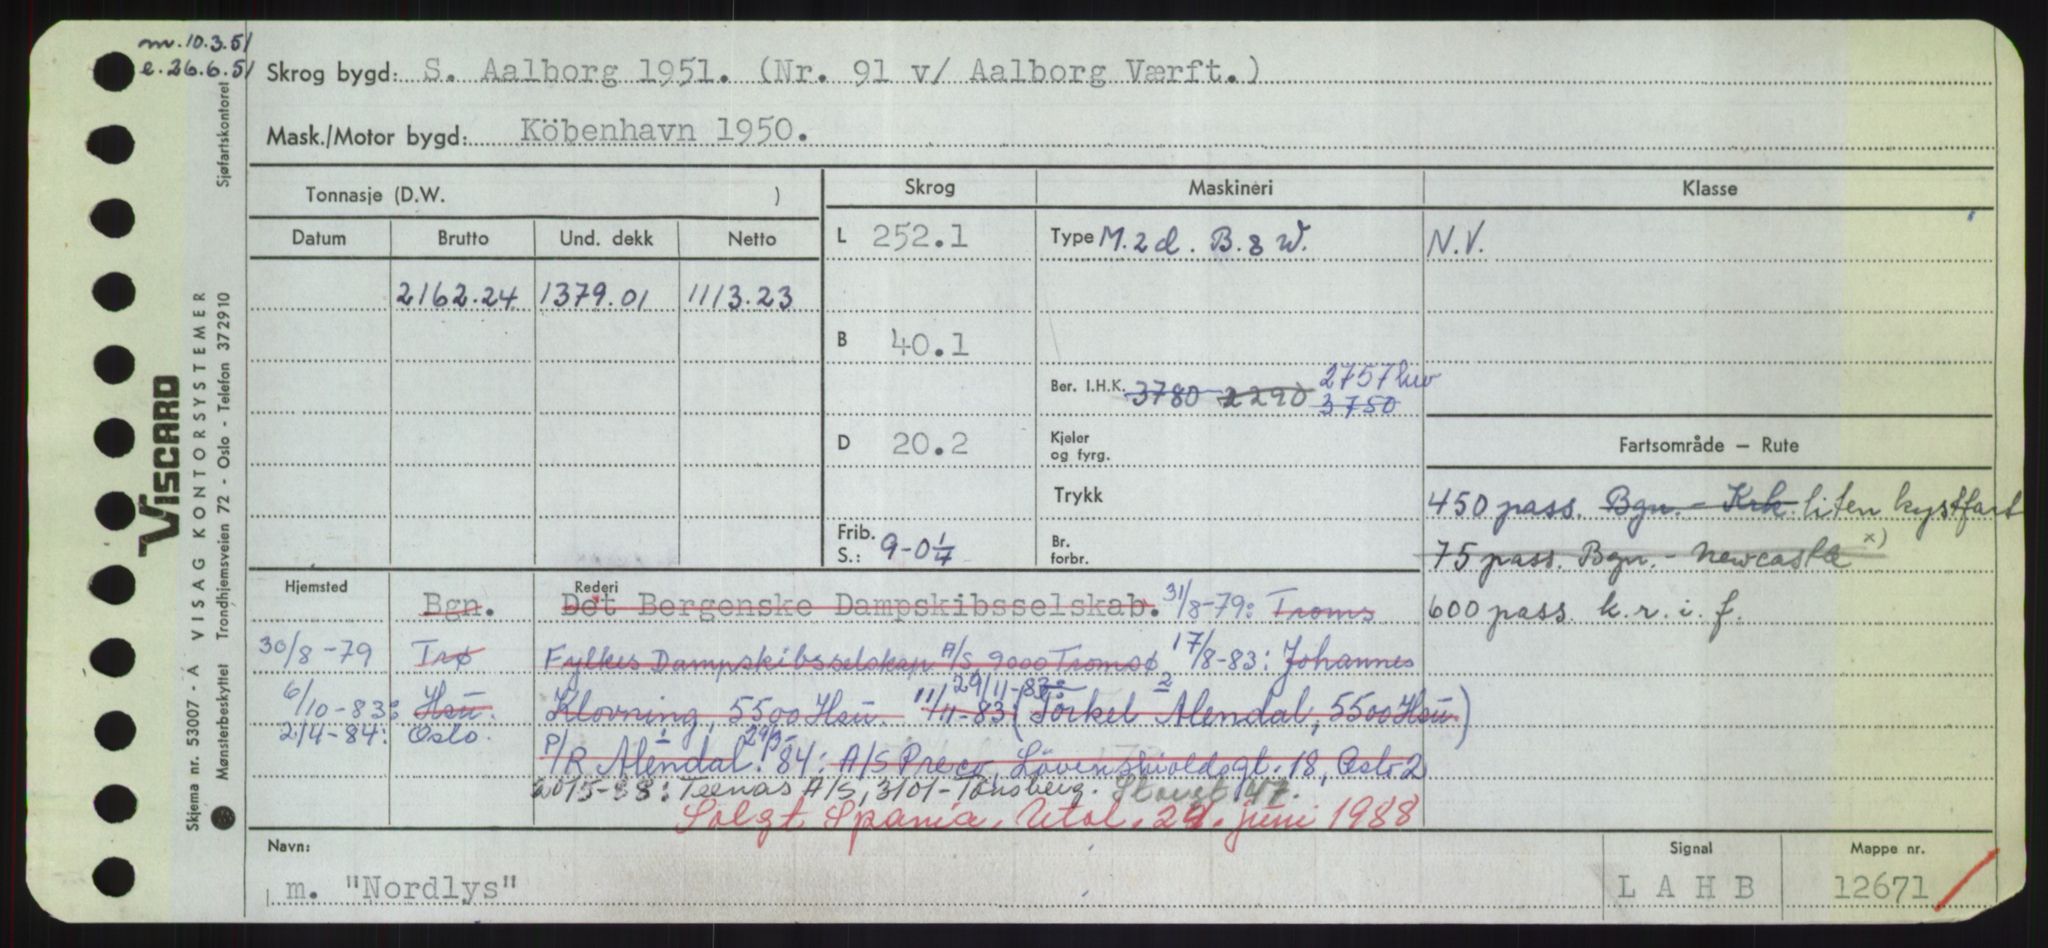 m. 10.3.51
e. 26.6.51
Skrog bygd: S. Aalborg 1951. (Nr. 91 v/ Aalborg Værft.)
Mask./Motor bygd: Köbenhavn 1950.
Tonnasje (D.W. )
Skrog
Maskineri
Klasse
Datum
Brutto
Und. dekk
Netto
L 252.1
Type M. 2 d. B. & W.
N.V.
2162.24
1379.01
1113.23
B 40.1
Ber. I.H.K. 3780 2290 2757 kw
3750
D 20.2
Kjeler
og fyrg.
Fartsområde — Rute
Trykk
450 pass. Bgn. - Krk. liten kystfart
Frib.
S.: 9-0 1/4
Br.
forbr.
75 pass. Bgn. - Newcastle x)
600 pass. k.r.i.f.
Hjemsted
Rederi
Bgn.
Det Bergenske Dampskibsselskab. 31/8-79: Troms
30/8-79 Trø
Fylkes Dampskibsselskap A/S, 9000 Tromsø 17/8-83: Johannes
6/10-83: Hsu.
29/11-83: 2
Klovning, 5500 Hsu. 11/11-83: (Torkel Alendal, 5500 Hsu)
2/4-84: Oslo.
P/R Alendal. 29/3-84: A/S Preco, Lövenskioldsgt. 18, Oslo 2
15-88: Teenas A/S, 3101-Tønsberg. Storgt. 47.
Solgt Spania, Utol. 29. juni 1988
Navn:
m. "Nordlys"
Signal
L A H B
Mappe nr.
12671
VISCARD
VISAG KONTORSYSTEMER
Skjema nr. 53007 - A
Mønsterbeskyttet Trondhjemsveien 72 - Oslo - Telefon 372910
Sjøfartskontoret